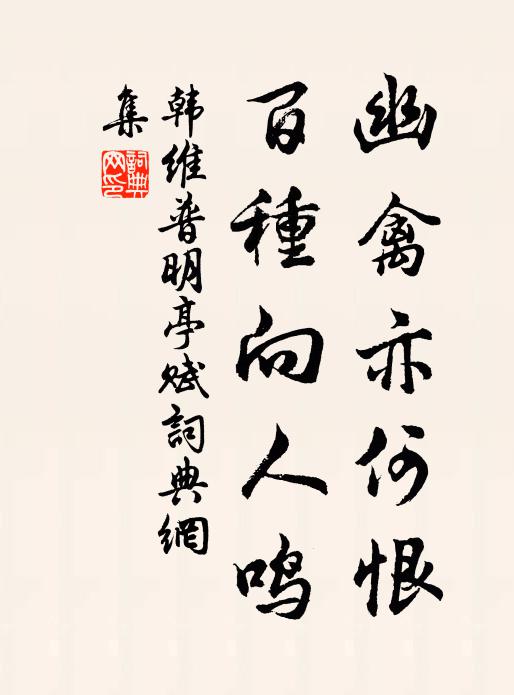 幽禽亦何恨
百種向人鸣
韩维普明亭赋詞典網
集
詞典
网印